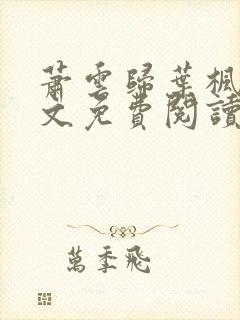 蕭雲歸葉楓
文免費閱讀
萬季飛